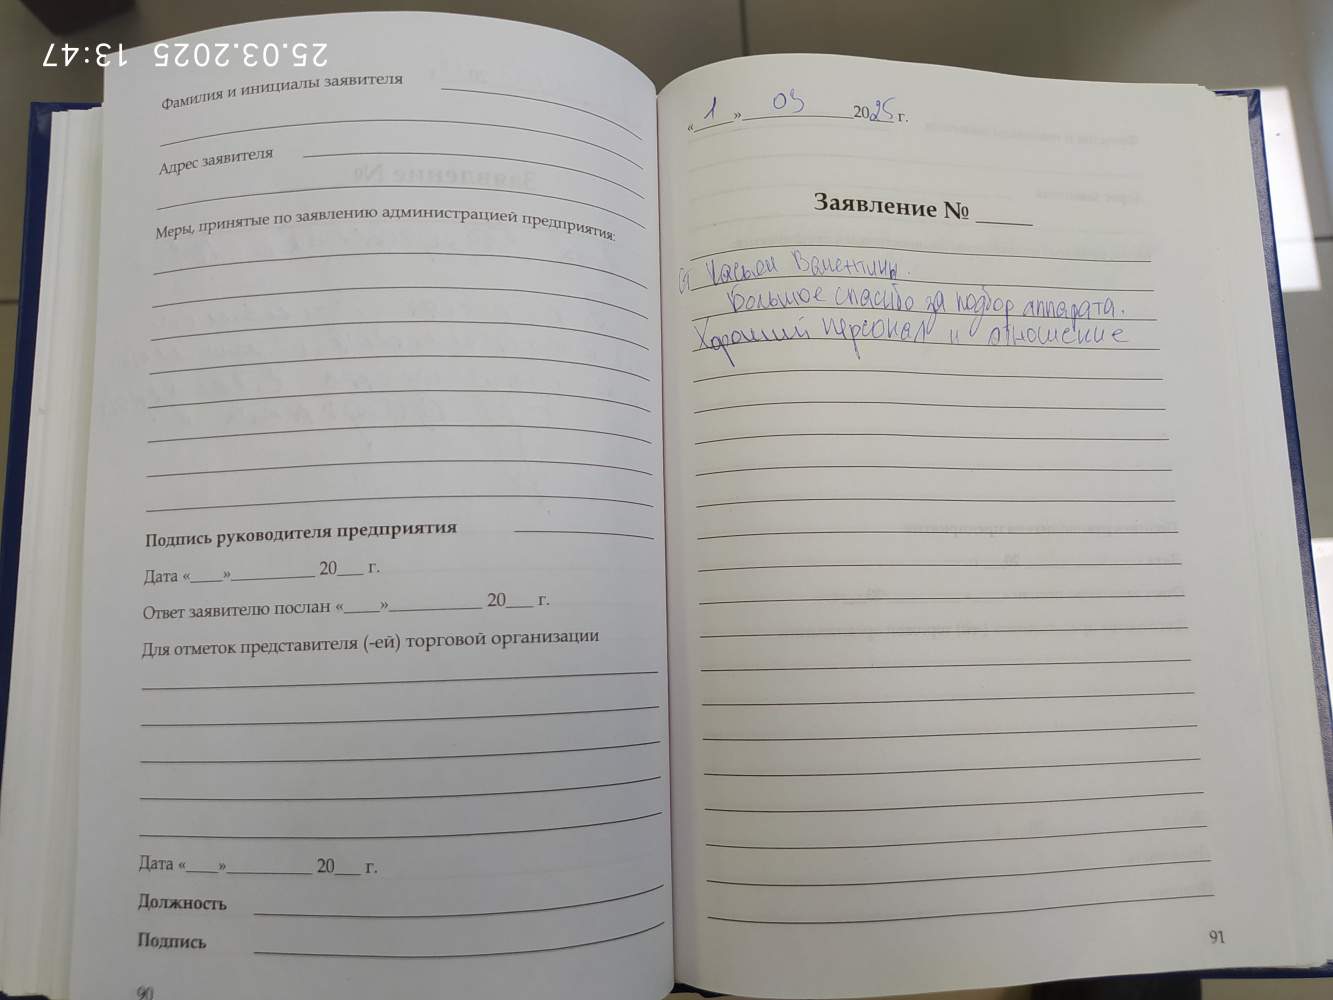 25.03.2025 13:47
Фамилия и инициалы заявителя
Адрес заявителя
Меры, принятые по заявлению администрацией предприятия:
Подпись руководителя предприятия
Дата «____»__________ 20___ г.
Ответ заявителю послан «____»___________ 20___ г.
Для отметок представителя (-ей) торговой организации
Дата «____»__________ 20___ г.
Должность
Подпись
90
« 1 » 03 2025 г.
Заявление № ____
От Валентины.
Большое спасибо за подбор аппарата.
Хороший персонал и отношение
91